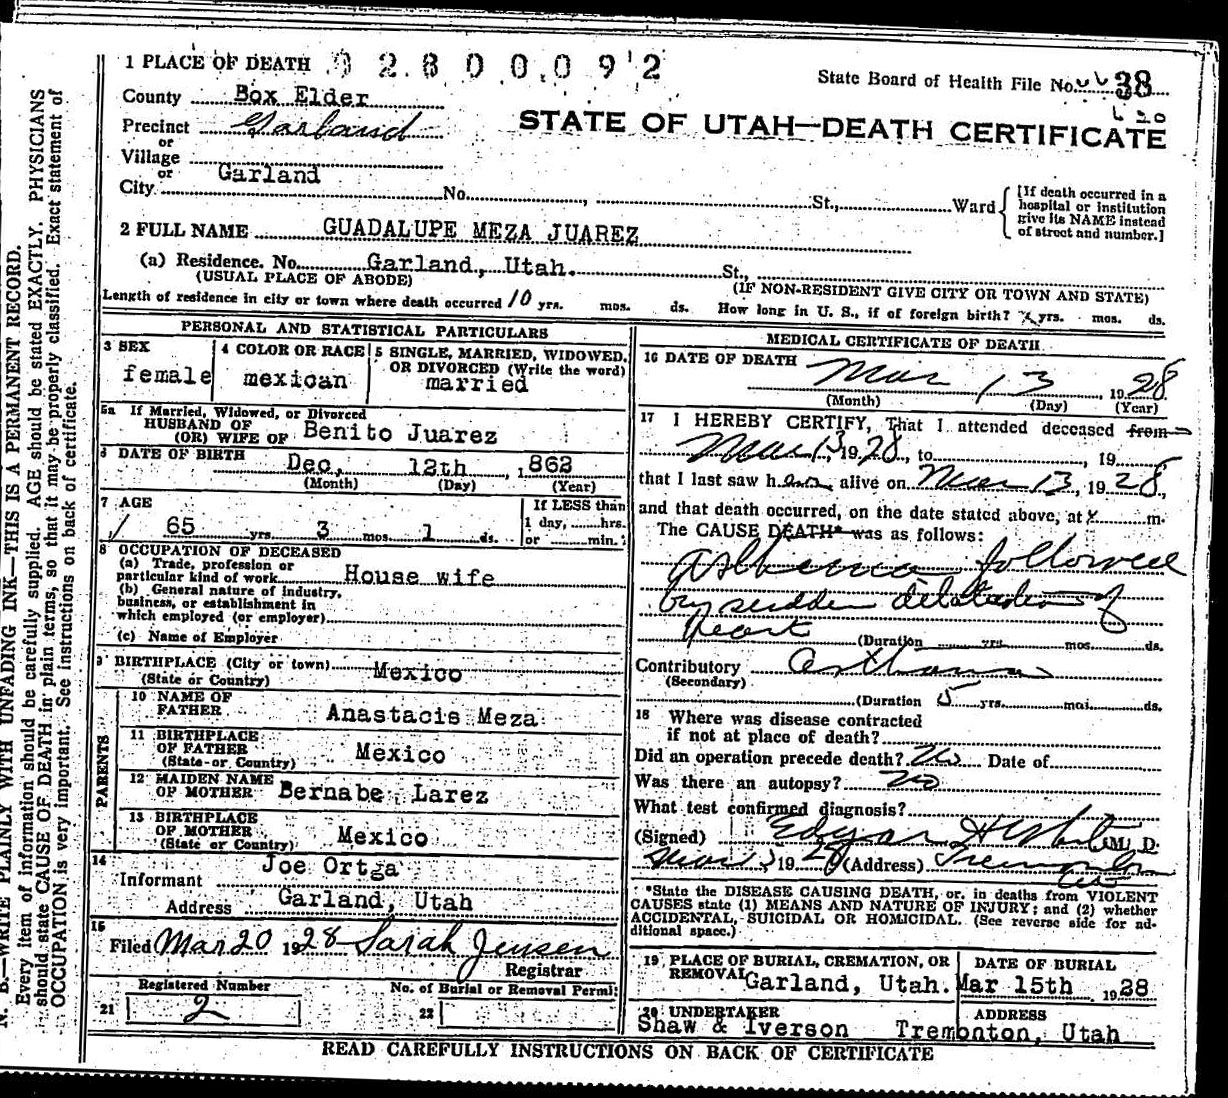 1 PLACE OF DEATH
State Board of Health File No. 38
County Box Elder
Precinct Garland
STATE OF UTAH—DEATH CERTIFICATE
or
Village
or
City Garland No. St., Ward
[If death occurred in a hospital or institution give its NAME instead of street and number.]
2 FULL NAME GUADALUPE MEZA JUAREZ
(a) Residence. No. Garland, Utah. St.,
(USUAL PLACE OF ABODE) (IF NON-RESIDENT GIVE CITY OR TOWN AND STATE)
Length of residence in city or town where death occurred 10 yrs. mos. ds. How long in U. S., if of foreign birth? yrs. mos. ds.
PERSONAL AND STATISTICAL PARTICULARS
3 SEX
female
4 COLOR OR RACE
mexican
5 SINGLE, MARRIED, WIDOWED,
OR DIVORCED (Write the word)
married
5a If Married, Widowed, or Divorced
HUSBAND OF
(OR) WIFE OF Benito Juarez
6 DATE OF BIRTH Dec, 12th ,1862
(Month) (Day) (Year)
7 AGE
65 yrs. 3 mos. 1 ds.
If LESS than
1 day, hrs.
or min.
8 OCCUPATION OF DECEASED
(a) Trade, profession or
particular kind of work House wife
(b) General nature of industry,
business, or establishment in
which employed (or employer)
(c) Name of Employer
9 BIRTHPLACE (City or town) Mexico
(State or Country)
PARENTS
10 NAME OF
FATHER Anastacis Meza
11 BIRTHPLACE
OF FATHER Mexico
(State or Country)
12 MAIDEN NAME
OF MOTHER Bernabe Larez
13 BIRTHPLACE
OF MOTHER Mexico
(State or Country)
14
Informant Joe Ortga
Address Garland, Utah
15
Filed Mar 20 1928 Sarah Jensen
Registrar
Registered Number
21 2
No. of Burial or Removal Permit
22
MEDICAL CERTIFICATE OF DEATH
16 DATE OF DEATH Mar 13, 1928
(Month) (Day) (Year)
17 I HEREBY CERTIFY, That I attended deceased from
Mar 13, 1928, to , 19
that I last saw her alive on Mar 13, 1928,
and that death occurred, on the date stated above, at m.
The CAUSE DEATH* was as follows:
Asthma followed
by sudden dilatation of
Heart
(Duration yrs. mos. ds.
Contributory asthma
(Secondary)
(Duration 5 yrs. mos. ds.
18 Where was disease contracted
if not at place of death?
Did an operation precede death? No Date of
Was there an autopsy? No
What test confirmed diagnosis?
(Signed) Edgar H M. D.
Mar 1928 (Address) Tremonton
*State the DISEASE CAUSING DEATH, or, in deaths from VIOLENT
CAUSES state (1) MEANS AND NATURE OF INJURY; and (2) whether
ACCIDENTAL, SUICIDAL OR HOMICIDAL. (See reverse side for ad-
ditional space.)
19 PLACE OF BURIAL, CREMATION, OR
REMOVAL Garland, Utah.
DATE OF BURIAL
Mar 15th 1928
20 UNDERTAKER
Shaw & Iverson
ADDRESS
Tremonton, Utah
READ CAREFULLY INSTRUCTIONS ON BACK OF CERTIFICATE
N. B.—WRITE PLAINLY WITH UNFADING INK—THIS IS A PERMANENT RECORD.
Every item of information should be carefully supplied. AGE should be stated EXACTLY. PHYSICIANS
should state CAUSE OF DEATH in plain terms, so that it may be properly classified. Exact statement of
OCCUPATION is very important. See instructions on back of certificate.